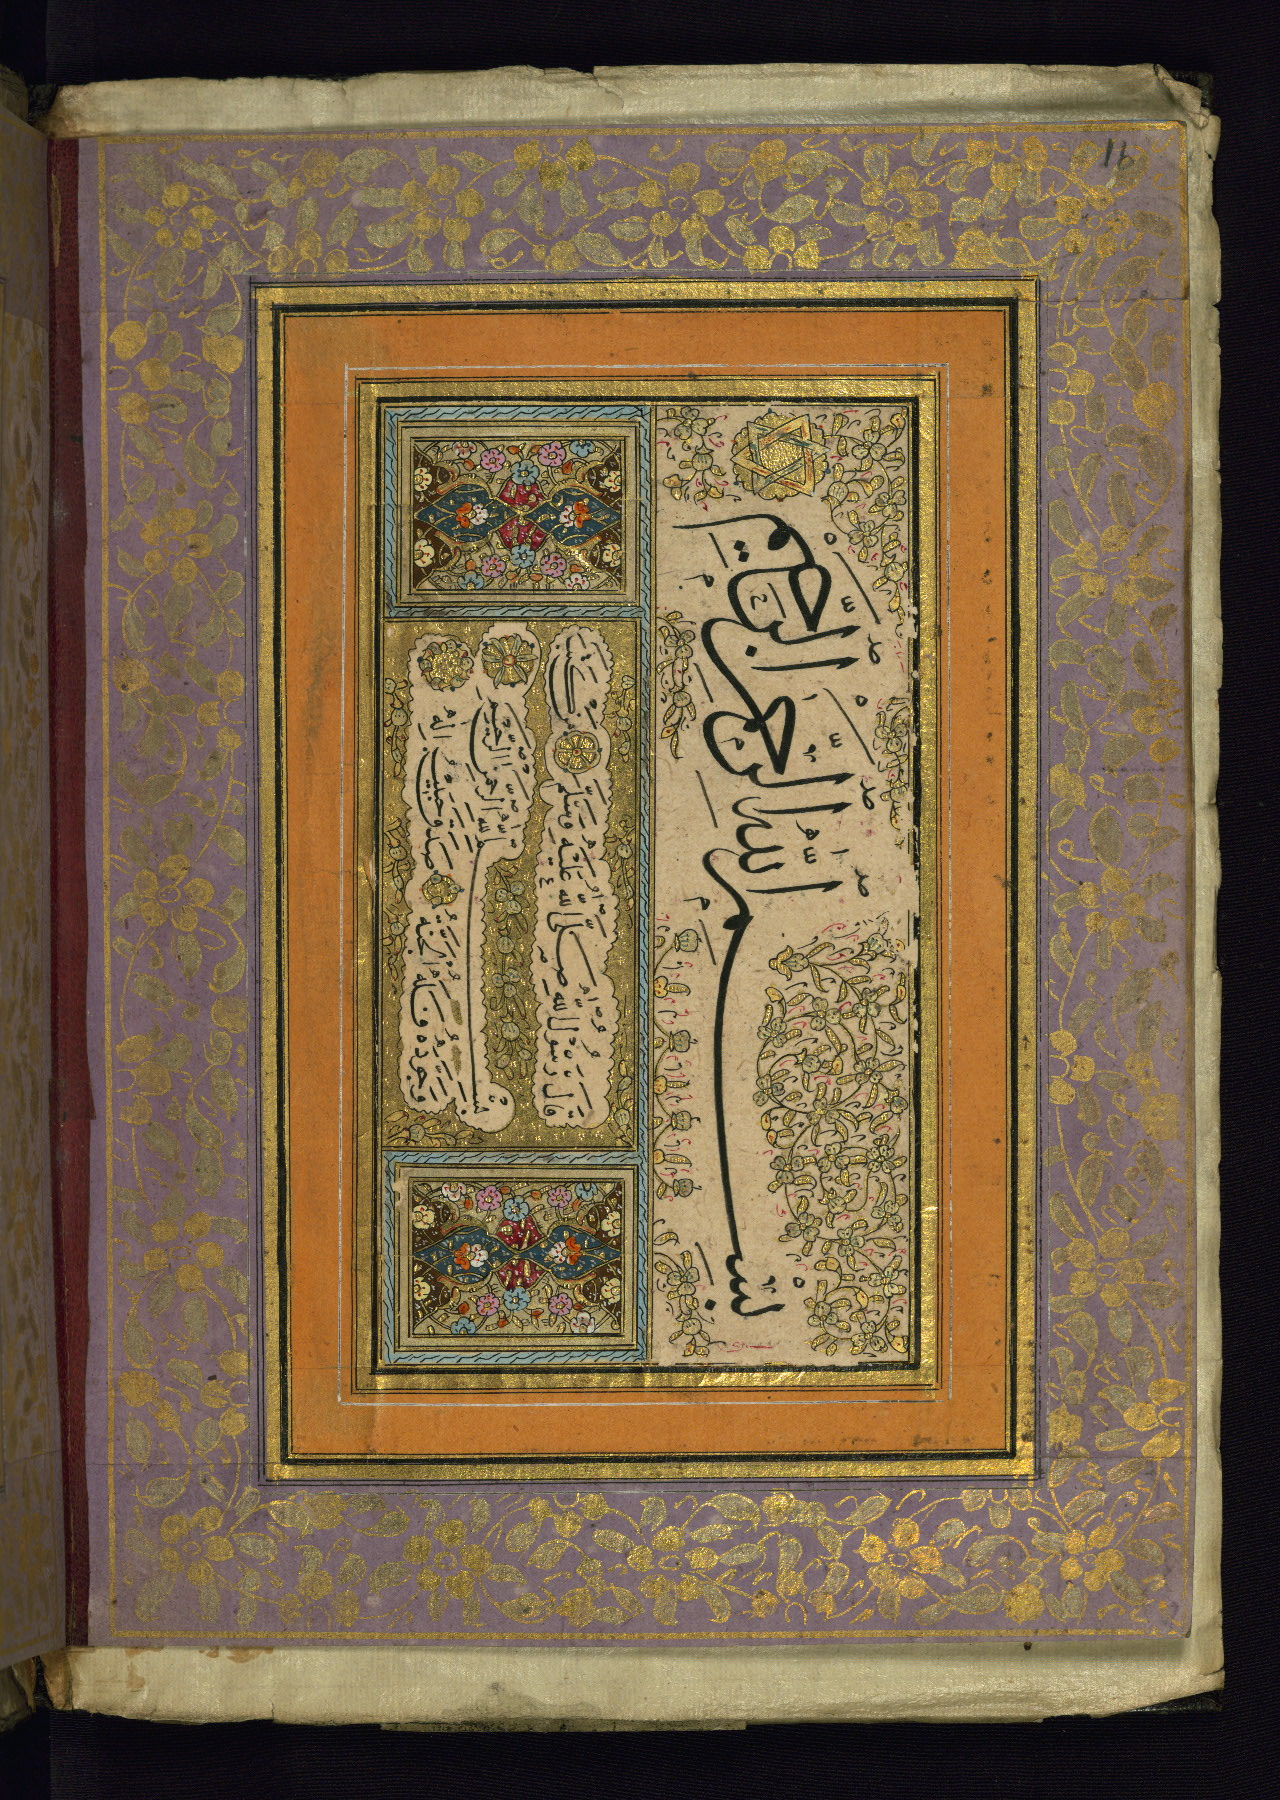 بسم الله الرحمن الرحيم
قال رسول الله صلى الله عليه وسلم من كتب
بسم الله الرحمن الرحيم
وجوده فله الجنة صدق حبيب الله